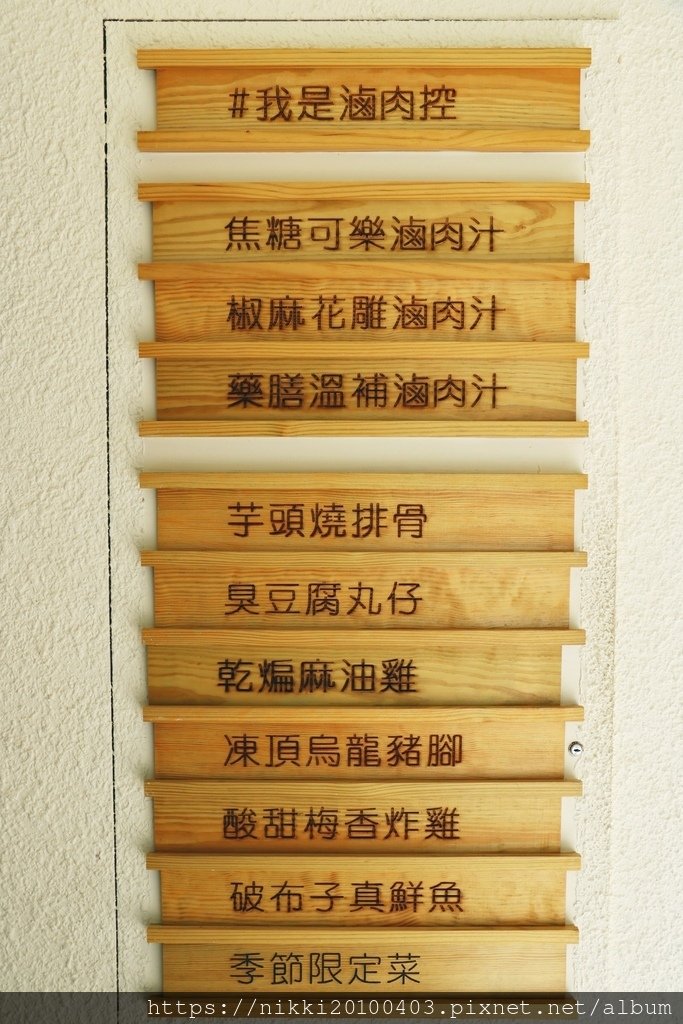 #我是滷肉控
焦糖可樂滷肉汁
椒麻花雕滷肉汁
藥膳溫補滷肉汁
芋頭燒排骨
臭豆腐丸仔
乾煸麻油雞
凍頂烏龍豬腳
酸甜梅香炸雞
破布子真鮮魚
季節限定菜
https://nikki20100403.pixnet.net/album